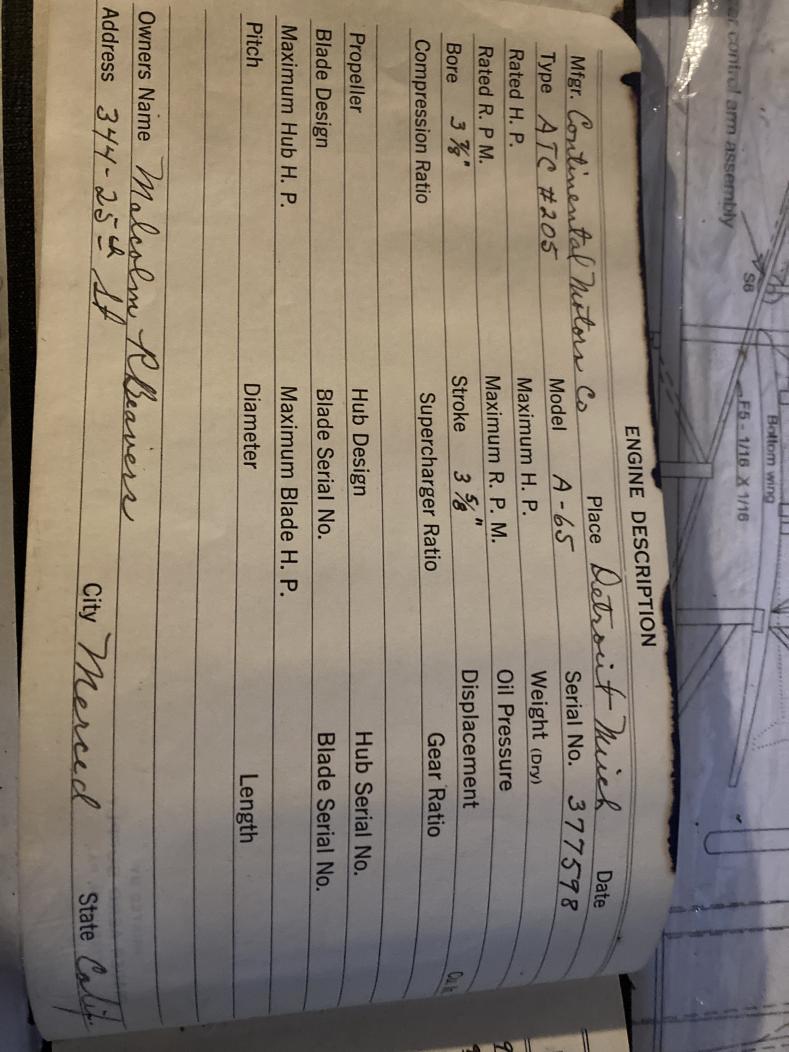 ENGINE DESCRIPTION
Mfgr. Continental Motors Co Place Detroit Mich Date
Type ATC #205 Model A-65 Serial No. 377598
Rated H. P. Maximum H. P. Weight (Dry)
Rated R. P M. Maximum R. P. M. Oil Pressure
Bore 3 7/8" Stroke 3 5/8" Displacement
Compression Ratio Supercharger Ratio Gear Ratio
Propeller Hub Design Hub Serial No.
Blade Design Blade Serial No. Blade Serial No.
Maximum Hub H. P. Maximum Blade H. P.
Pitch Diameter Length
Owners Name Malcolm R Beavers
Address 344-25th St City Merced State Calif
control arm assembly
S6
F5 - 1/16 X 1/16
Bottom wing